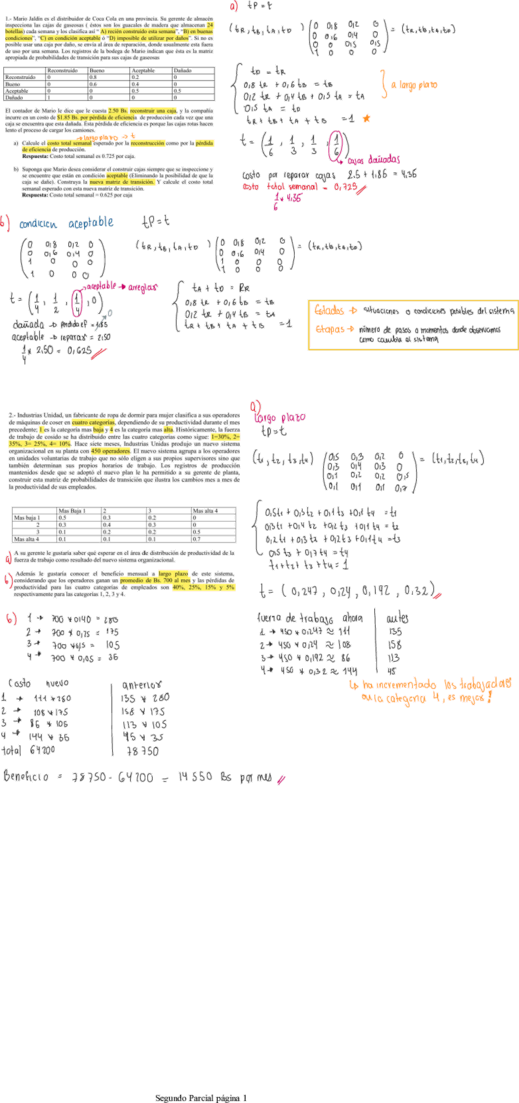 1.- Mario Jaldin es el distribuidor de Coca Cola en una provincia. Su gerente de almacén
inspecciona las cajas de gaseosas ( éstos son los guacales de madera que almacenan 24
botellas) cada semana y los clasifica así “ A) recién construido esta semana”, “B) en buenas
condiciones”, “C) en condición aceptable ó “D) imposible de utilizar por daños”. Si no es
posible usar una caja por daño, se envía al área de reparación, donde usualmente esta fuera
de uso por una semana. Los registros de la bodega de Mario indican que ésta es la matriz
apropiada de probabilidades de transición para sus cajas de gaseosas
Reconstruido Bueno Aceptable Dañado
Reconstruido 0 0.8 0.2 0
Bueno 0 0.6 0.4 0
Aceptable 0 0 0.5 0.5
Dañado 1 0 0 0
El contador de Mario le dice que le cuesta 2.50 Bs. reconstruir una caja, y la compañía
incurre en un costo de $1.85 Bs. por perdida de eficiencia de producción cada vez que una
caja se encuentra que esta dañada. Esta pérdida de eficiencia es porque las cajas rotas hacen
lento el proceso de cargar los camiones.
largo plazo → t
a) Calcule el coste total semanal esperado por la reconstrucción como por la pérdida
de eficiencia de producción.
Respuesta: Costo total semanal es 0.725 por caja.
b) Suponga que Mario desea considerar el construir cajas siempre que se inspeccione y
se encuentre que están en condición aceptable (Eliminando la posibilidad de que la
caja se daño). Construya la nueva matriz de transición. Y calcule el costo total
semanal esperado con esta nueva matriz de transición.
Respuesta: Costo total semanal = 0.625 por caja
a) tP = t
(tR, tB, tA, tD) (0 0,8 0,2 0 = (tR, tB, tA, tD)
0 0,6 0,4 0
0 0 0,5 0,5
1 0 0 0)
tD = tR
0,8 tR + 0,6 tB = tB
0,2 tR + 0,4 tB + 0,5 tA = tA
0,5 tA = tD
tR + tB + tA + tB = 1 *
a largo plazo
t = (1/6, 1/3, 1/3, 1/6)
cajas dañadas
costo por reparar cajas 2.5 + 1.86 = 4,36
costo total semanal = 0,725
1/6 * 4,35
b) condición aceptable tP = t
(0 0,8 0,2 0
0 0,6 0,4 0
1 0 0 0
1 0 0 0)
(tR, tB, tA, tD) (0 0,8 0,2 0 = (tR, tB, tA, tD)
0 0,6 0,4 0
1 0 0 0
1 0 0 0)
t = (1/4, 1/2, 1/4, 0)
aceptable → arreglas
aceptable → reparar = 2,50
1/4 * 2.50 = 0,625
tA + tD = RR
0,8 tR + 0,6 tB = tB
0,2 tR + 0,4 tB = tA
tR + tB + tA + tB = 1
Estados → situaciones o condiciones posibles del sistema
Etapas → número de pasos o momentos donde observamos
como cambia el sistema
2.- Industrias Unidad, un fabricante de ropa de dormir para mujer clasifica a sus operadores
de máquinas de coser en cuatro categorías, dependiendo de su productividad durante el mes
precedente; 1 es la categoría mas baja y 4 es la categoría mas alta. Históricamente, la fuerza
de trabajo de cosido se ha distribuido entre las cuatro categorías como sigue: 1=30%, 2=
35%, 3= 25%, 4= 10%. Hace siete meses, Industrias Unidas produjo un nuevo sistema
organizacional en su planta con 450 operadores. El nuevo sistema agrupa a los operadores
en unidades voluntarias de trabajo que no sólo eligen a sus propios supervisores sino que
también determinan sus propios horarios de trabajo. Los registros de producción
mantenidos desde que se adoptó el nuevo plan le ha permitido a su gerente de planta,
construir esta matriz de probabilidades de transición que ilustra los cambios mes a mes de
la productividad de sus empleados.
Mas Baja 1 2 3 Mas alta 4
Mas baja 1 0.5 0.3 0.2 0
2 0.3 0.4 0.3 0
3 0.1 0.2 0.2 0.5
Mas alta 4 0.1 0.1 0.1 0.7
a) A su gerente le gustaría saber qué esperar en el área de distribución de productividad de la
fuerza de trabajo como resultado del nuevo sistema organizacional.
b) Además le gustaría conocer el beneficio mensual a largo plazo de este sistema,
considerando que los operadores ganan un promedio de Bs. 700 al mes y las pérdidas de
productividad para las cuatro categorías de empleados son 40%, 25%, 15% y 5%
respectivamente para las categorías 1, 2, 3 y 4.
a)
largo plazo
tP = t
(t1, t2, t3, t4) (0,5 0,3 0,2 0 = (t1, t2, t3, t4)
0,3 0,4 0,3 0
0,1 0,2 0,2 0,5
0,1 0,1 0,1 0,7)
0,5t1 + 0,3t2 + 0,1t3 + 0,1t4 = t1
0,3t1 + 0,4t2 + 0,2t3 + 0,1t4 = t2
0,2t1 + 0,3t2 + 0,2t3 + 0,1t4 = t3
0,5t3 + 0,7t4 = t4
t1 + t2 + t3 + t4 = 1
t = (0,247, 0,24, 0,192, 0,32)
fuerza de trabajo ahora antes
1 → 450 * 0,247 ≈ 111 135
2 → 450 * 0,24 ≈ 108 158
3 → 450 * 0,192 ≈ 86 113
4 → 450 * 0,32 ≈ 144 45
Lo ha incrementado los trabajadores
en la categoria 4, es mejor!
b) 1 → 700 * 0,40 = 280
2 → 700 * 0,25 = 175
3 → 700 * 0,15 = 105
4 → 700 * 0,05 = 35
Costo nuevo anterior
1 → 111 * 280 135 * 280
2 → 108 * 175 158 * 175
3 → 86 * 105 113 * 105
4 → 144 * 35 45 * 35
total 64200 78750
Beneficio = 78750 - 64200 = 14550 Bs por mes
Segundo Parcial página 1